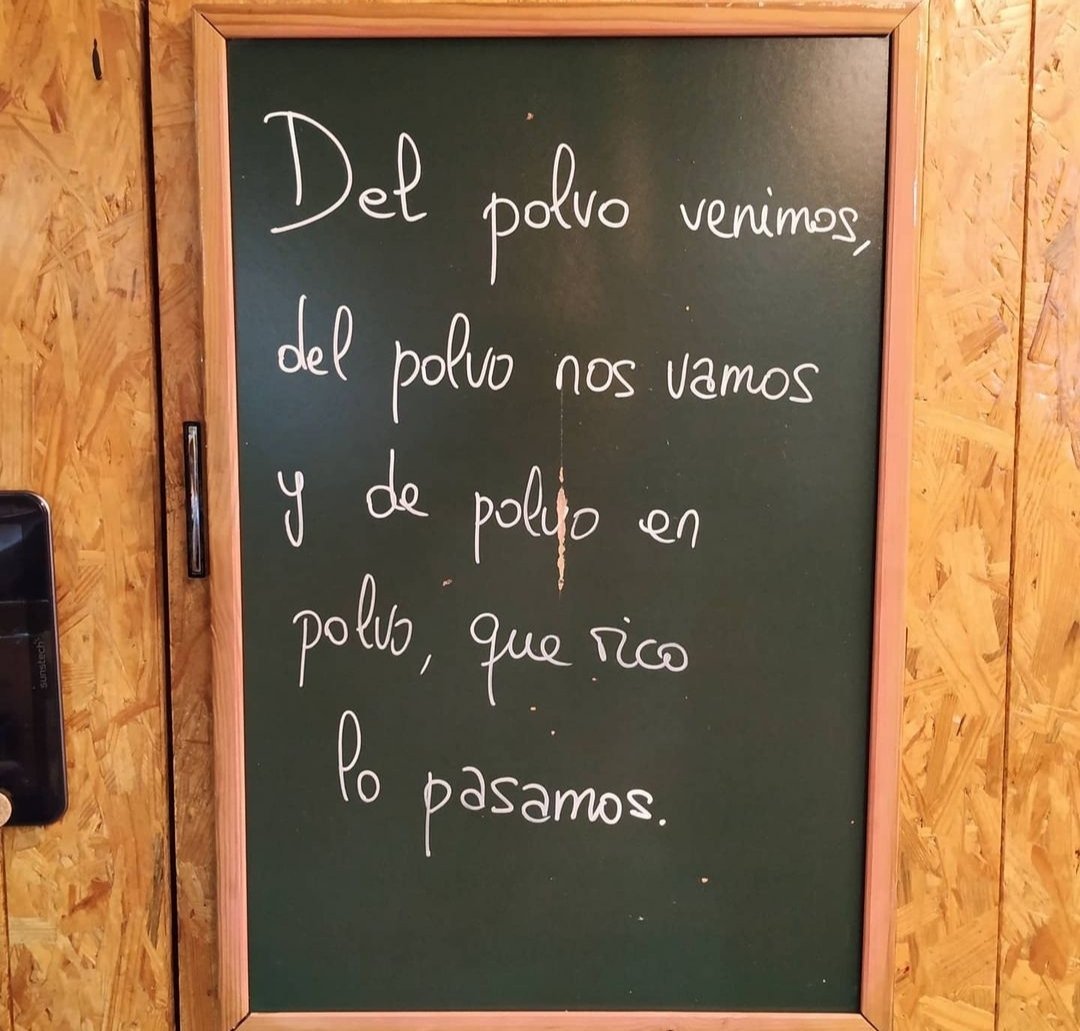 Del polvo venimos,
del polvo nos vamos
y de polvo en
polvo, que rico
lo pasamos.
sunstech